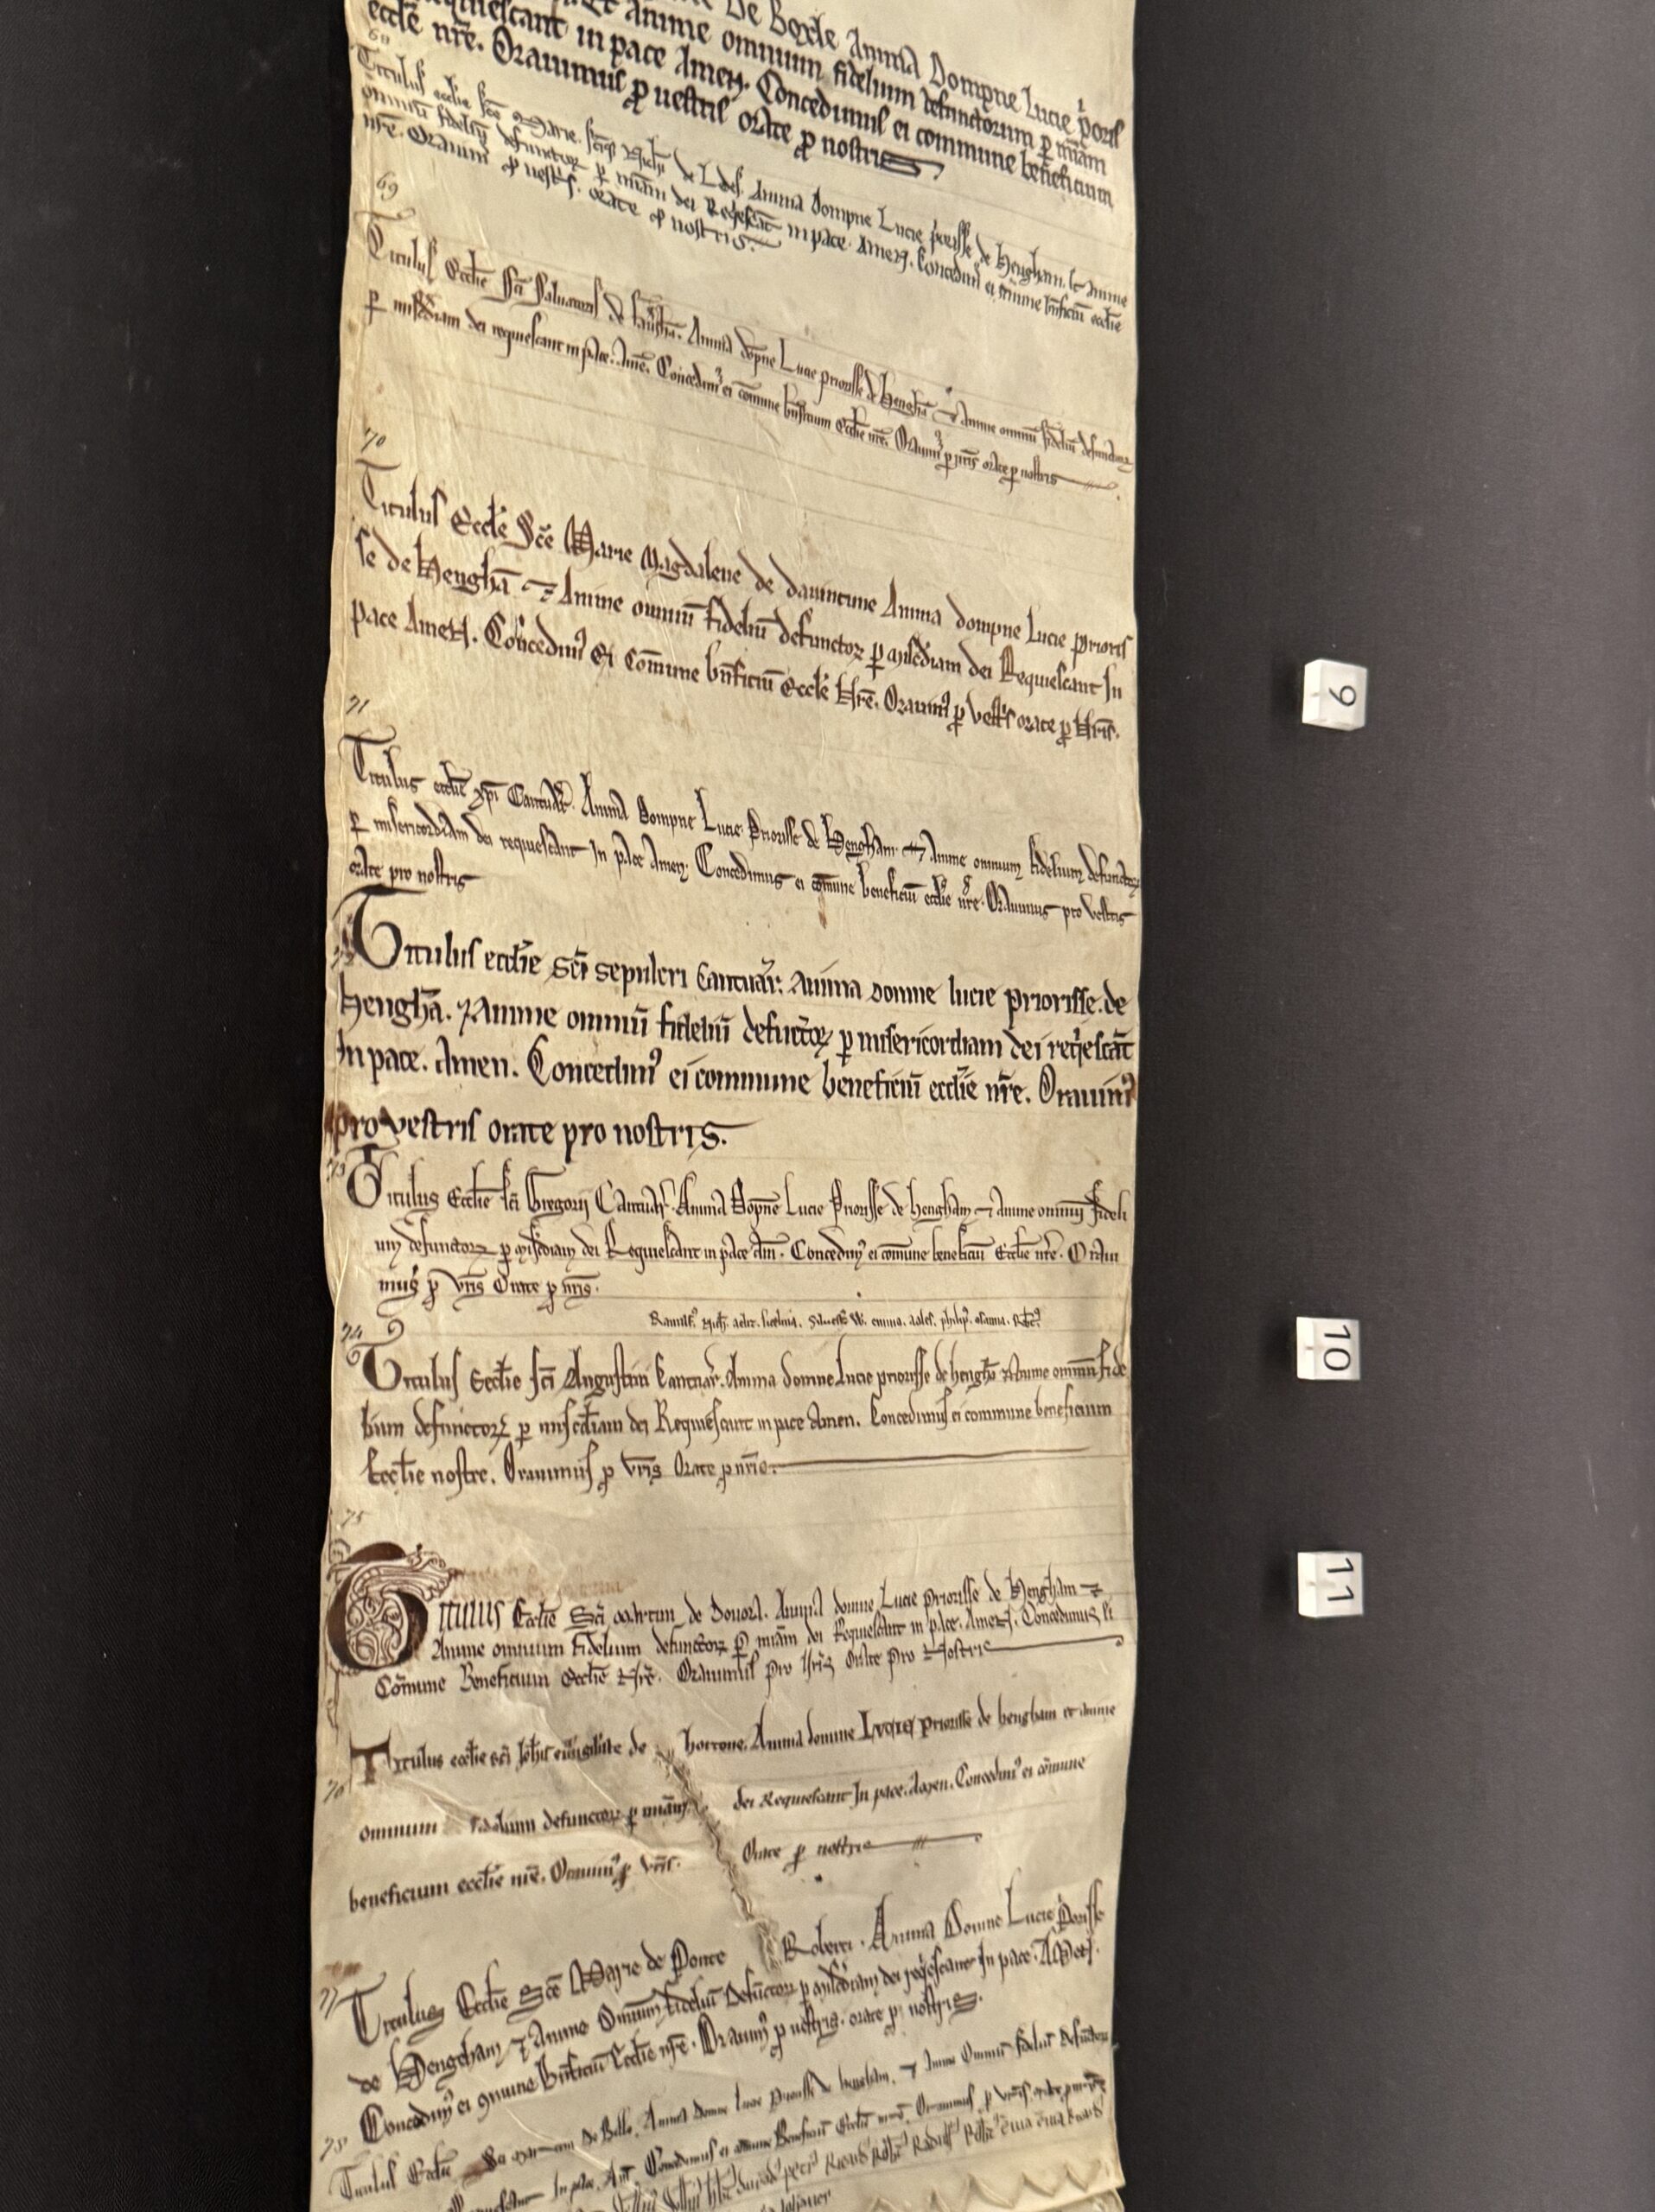 De Boxle Anima Dompne Lucie p'oris
Et anime omnium fidelium defunctorum p miam
requiescant in pace Amen. Concedimus ei commune beneficium
eccle nre. Orauimus p uestris orate p nostris
68
Titulus ecclie sce Marie. de Ledes. Anima Dompne Lucie p'orisse de Hengham. Et anime
omniu fidelium defunctor p miam dei Reqiescat in pace. Amen. Concedim' ei comune bnficiu ecclie
nre. Orauim p uestris. orate p nostris.
69
Titulus Ecclie Sci Saluatoris de faueshā. Anima dompne Lucie priorisse de Henghā & Anime omniu fideliu defunctor
p misediam dei requiescant in pace. Amē. Concedim' ei comune bnficium Ecclie nre. Orauim' p uris orate p nostris
70
Titulus Eccle Sce Marie Magdalene de dauintune Anima dompne Lucie prioris
se de Henghā & Anime omniū fideliū defunctor p misediam dei Requiescant In
pace Amen. Concedim' Ei Comune bnficiū Eccle Nre. Orauim' p vestris orate p Nris.
71
Titulus ecclie xpi Cantuar. Anima Dompne Lucie Priorisse de Hengham & Anime omnium fidelium defunctor
p misericordiam dei requiescant In pace Amen. Concedimus ei comune beneficiū ecclie nre. Orauimus pro vestris
orate pro nostris
72
Titulus ecclie sci sepulcri Cantuar. Anima domne lucie priorisse. de
Henghā. & Anime omniū fideliū defūctor p misericordiam dei reqiescāt
In pace. Amen. Concedim' ei commune beneficiū ecclie nre. Orauim'
pro vestris orate pro nostris.
73
Titulus Ecclie sci Gregorij Cantuar. Anima Dopne Lucie Priorisse de Hengham & anime omniū fideli
um defunctor p misediam dei Requiescant in pace am. Concedim' ei comune beneficiū Ecclie nre. Orau
mus p vris Orate p nris.
74
Titulus Ecclie sci Augustini Cantuar. Anima domne Lucie priorisse de henghā & Anime omniū fide
lium defunctor p misediam dei Requiescant in pace Amen. Concedimus ei commune beneficium
Ecclie nostre. Orauimus p vris Orate p nris.
75
Titulus Ecclie Sci Martini de Douora. Anima domne Lucie Priorisse de Hengham &
Anime omnium fidelium defunctor p miam dei Requiescant in pace. Amen. Concedimus Ei
Comune Beneficium Ecclie Nre. Orauimus pro Uris Orate pro Nostris
76
Titulus ecclie sci Iohis euuangliste de hortone. Anima domne Lucie priorisse de hengham et anime
omnium fidelium defunctor p miam dei Requiescant In pace. Amen. Concedim' ei comune
beneficium ecclie nre. Orauim' p vris. Orate p nostris
77
Titulus Ecclie Sce Marie de Ponte Roberti. Anima Domne Lucie Priorisse
de Hengeham & Anime Omnium fideliū Defūctor p misediam dei reqiescant In pace. Amen.
Concedim' ei comune Bnficiū Ecclie nre. Orauim' p uestris. orate p nostris.
78
Titulus Ecclie Sci Martini De Bello. Anima domne Lucie Priorisse de hengham. & Anime Omniū fideliū Defunctor
In pace. Am. Concedimus ei comune Beneficiū Ecclie nre. Orauimus p vris. orate p nris
9
10
11